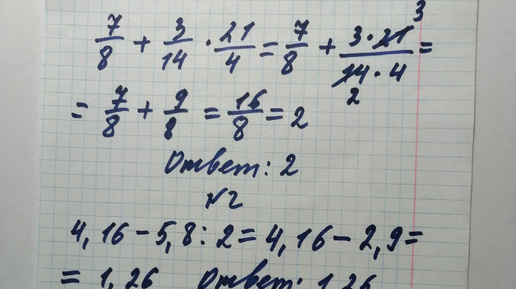 7/8 + 3/14 · 21/4 = 7/8 + 3 · 21 3/14 · 4 2 =
= 7/8 + 9/8 = 16/8 = 2
Ответ: 2
№2
4,16 - 5,8 : 2 = 4,16 - 2,9 =
= 1,26 Ответ: 1,26